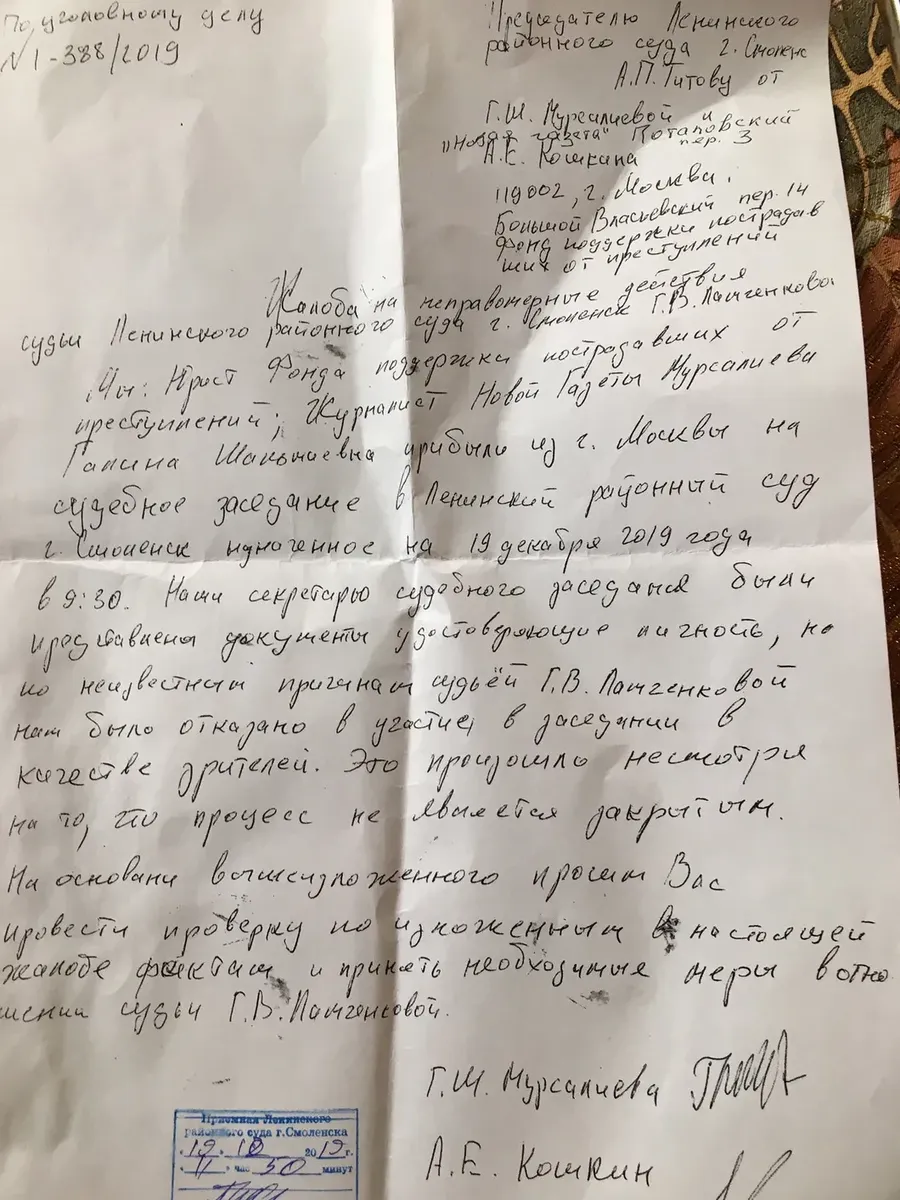 По уголовному делу
N1-388/2019
Председателю Ленинского
районного суда г. Смоленс
А.П. Титову от
Г.Ш. Мурсалиевой и
"Новая газета" Потаповский
пер. 3
А.Е. Кошкина
119002, г. Москва,
Большой Власьевский пер. 14
Фонд поддержки пострадав
ших от преступлений
Жалоба на неправомерные действия
судьи Ленинского районного суда г. Смоленск Г.В. Ламченкова
Мы: Юрист Фонда поддержки пострадавших от
преступлений; Журналист Новой Газеты Мурсалиева
Галина Шакышевна прибыли из г. Москвы на
судебное заседание в Ленинский районный суд
г. Смоленск назначенное на 19 декабря 2019 года
в 9:30. Нами секретарю судебного заседания были
представлены документы удостоверяющие личность, но
по неизвестным причинам судьёй Г.В. Ламченковой
нам было отказано в участие, в заседании в
качестве зрителей. Это произошло несмотря
на то, что процесс не является закрытым.
На основани вышеизложенного просим Вас
провести проверку по изложенным в настоящей
жалобе фактам и принять необходимые меры в отно
шении судьи Г.В. Ламченковой.
Г.Ш. Мурсалиева
А.Е. Кошкин
Приемная Ленинского
районного суда г.Смоленска
19 2019г.
11 час 50 минут